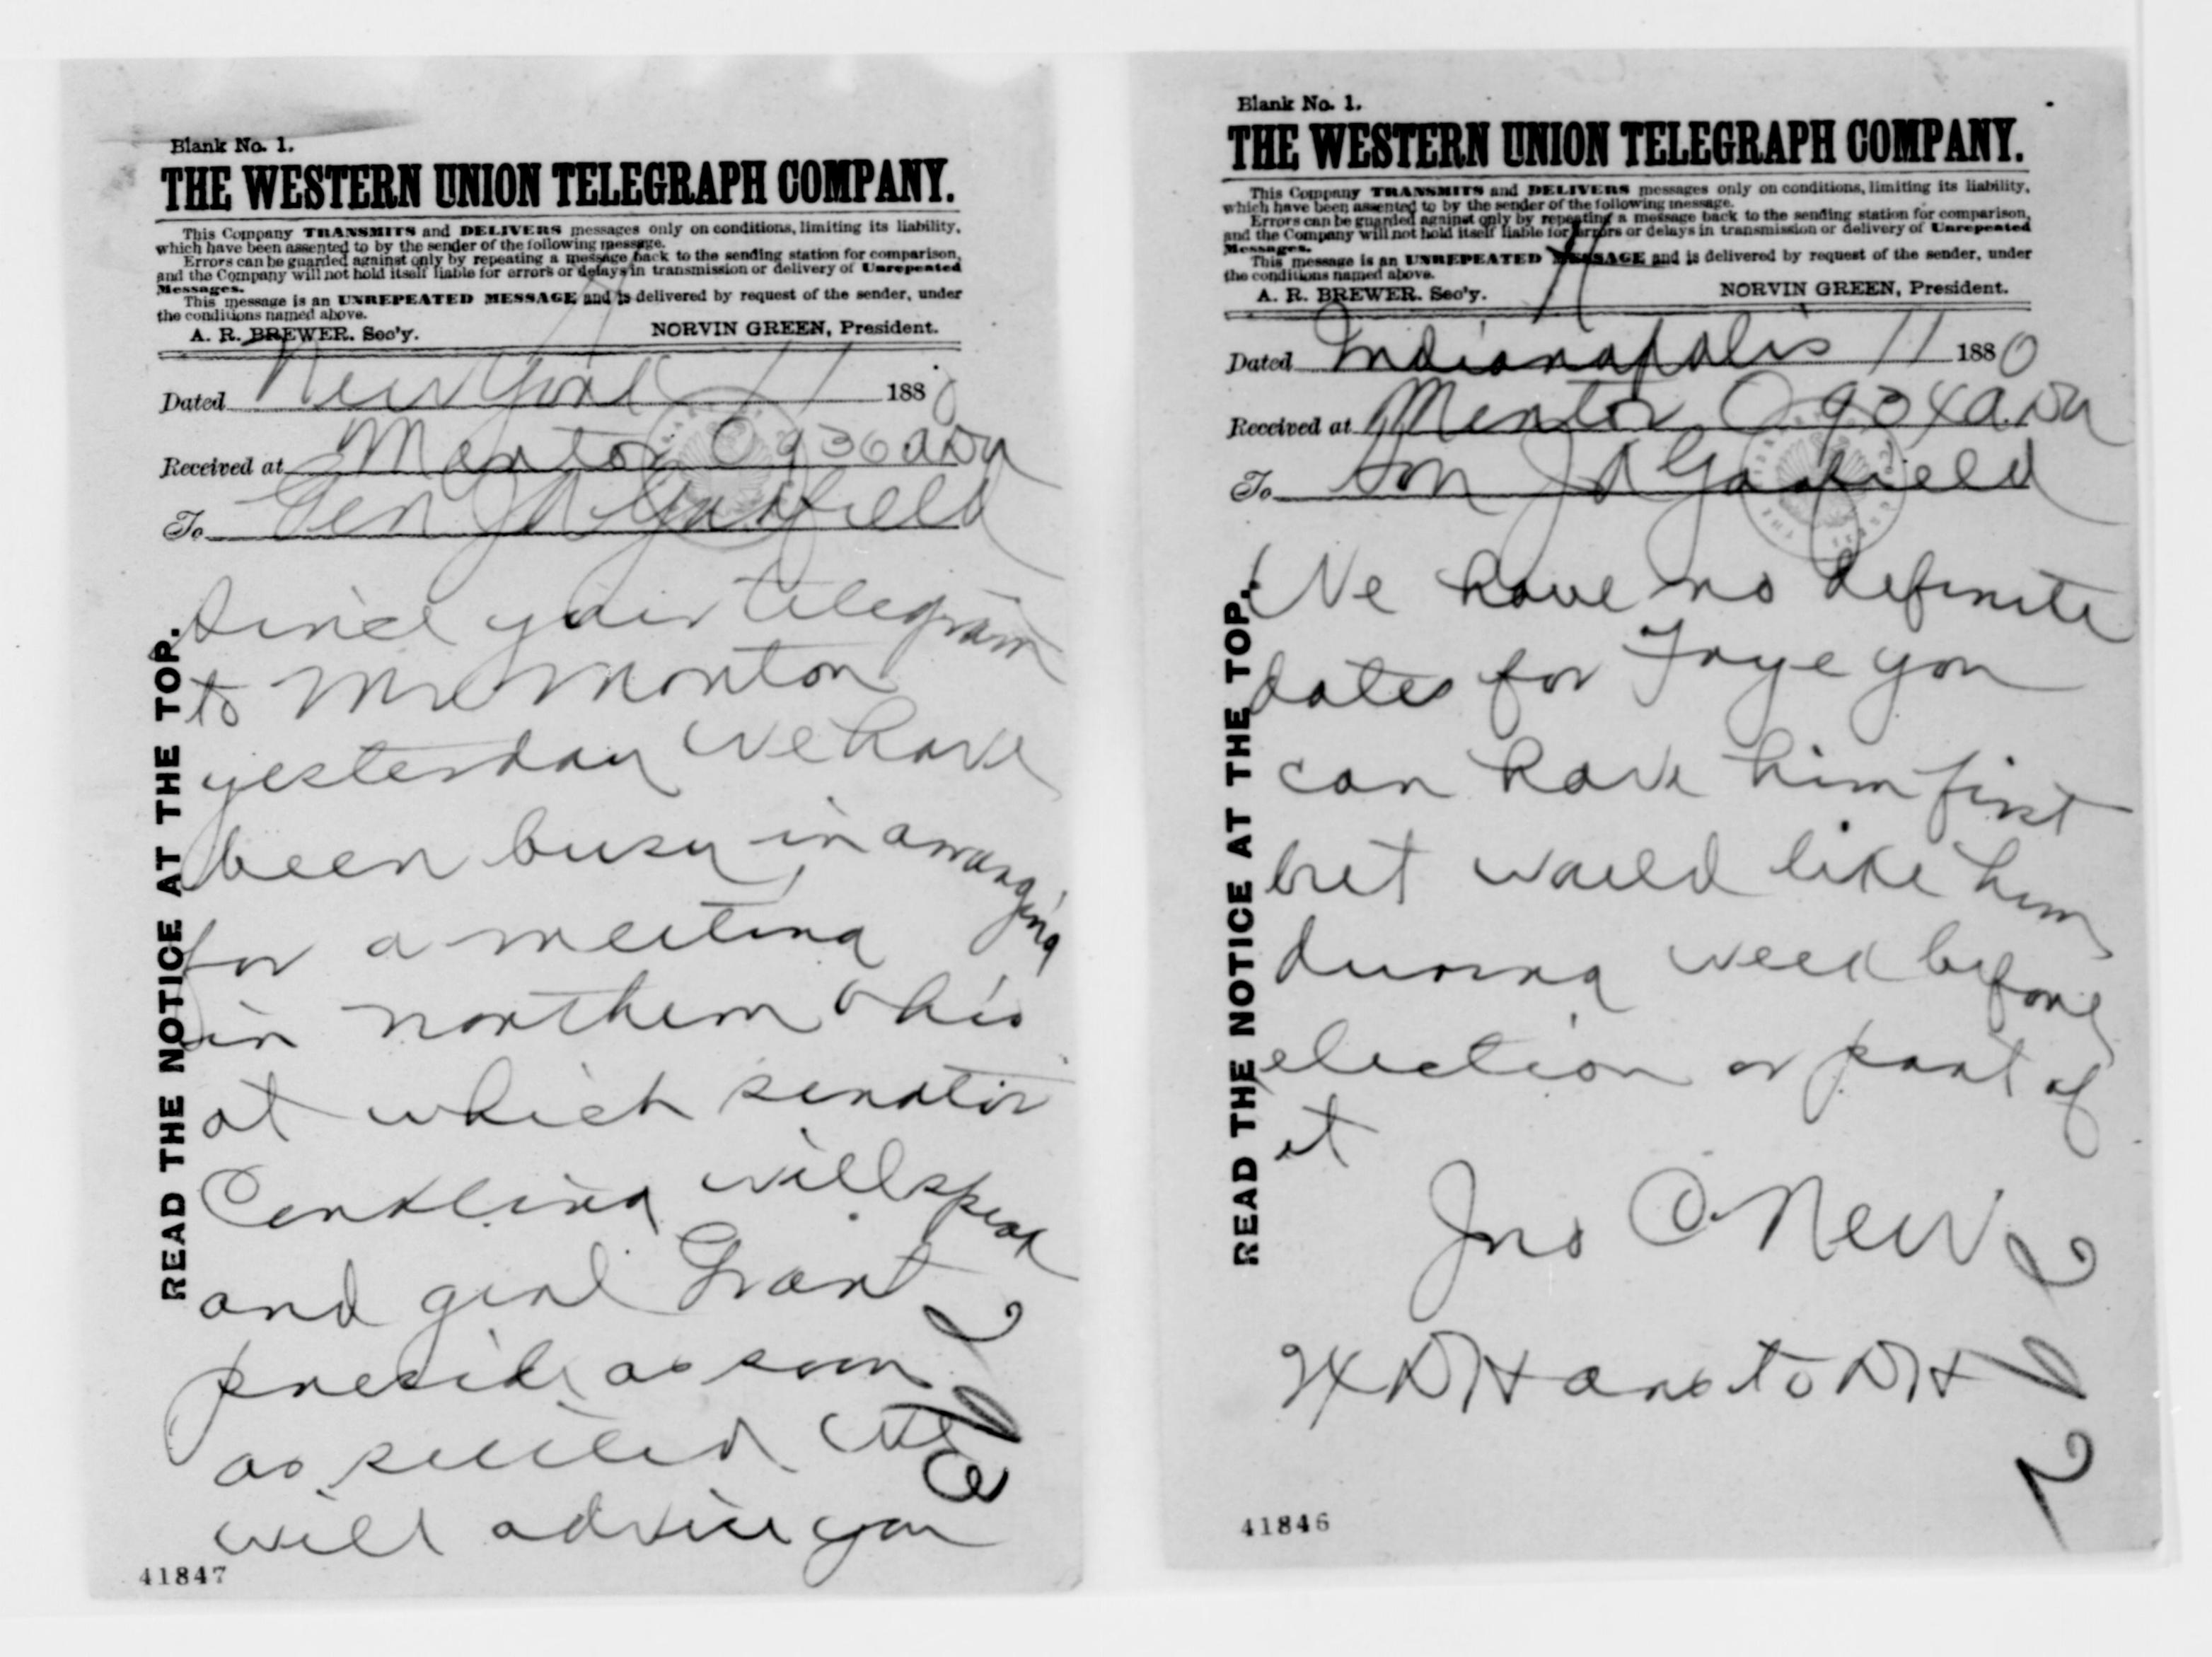 Blank No. 1.
THE WESTERN UNION TELEGRAPH COMPANY.
This Company TRANSMITS and DELIVERS messages only on conditions, limiting its liability,
which have been assented to by the sender of the following message.
Errors can be guarded against only by repeating a message back to the sending station for comparison,
and the Company will not hold itself liable for errors or delays in transmission or delivery of Unrepeated
Messages.
This message is an UNREPEATED MESSAGE and is delivered by request of the sender, under
the conditions named above.
A. R. BREWER. Sec'y. NORVIN GREEN, President.
Dated New York 11 1880
Received at Mentor O 936 am
To Gen J A Garfield
READ THE NOTICE AT THE TOP.
Since your telegram
to Mr Morton
yesterday we have
been busy in arranging
for a meeting
in northern Ohio
at which senator
Conkling will speak
and genl Grant
preside as soon
as settled we
will advise you
41847
Blank No. 1.
THE WESTERN UNION TELEGRAPH COMPANY.
This Company TRANSMITS and DELIVERS messages only on conditions, limiting its liability,
which have been assented to by the sender of the following message.
Errors can be guarded against only by repeating a message back to the sending station for comparison,
and the Company will not hold itself liable for errors or delays in transmission or delivery of Unrepeated
Messages.
This message is an UNREPEATED MESSAGE and is delivered by request of the sender, under
the conditions named above.
A. R. BREWER. Sec'y. NORVIN GREEN, President.
Dated Indianapolis 11 1880
Received at Mentor O
To Hon J A Garfield
READ THE NOTICE AT THE TOP.
We have no definite
dates for Frye you
can have him first
but would like him
during week before
election or part of
it
Jno C New
41846